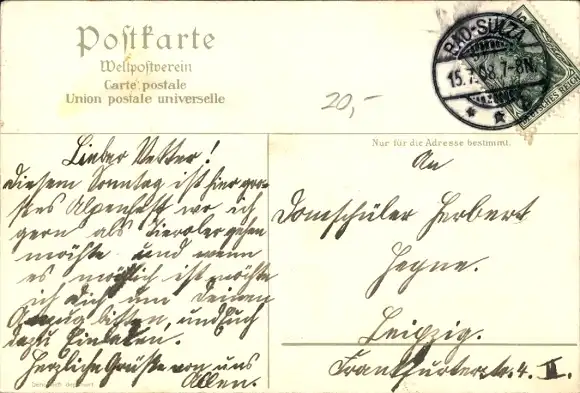 Postkarte
Weltpostverein
Carte postale
Union postale universelle
20,-
BAD-SULZA
15.7.08.7-8N.
DEUTSCHES REICH
Nur für die Adresse bestimmt.
Lieber Vetter!
Diesem Sonntag ist hier gros-
ses Alpenfest wo ich
gern als Tieroler gehen
möchte und wenn
es möglich ist möchte
ich Dich um Deinen
Anzug bitten, und Euch
dazu Einladen.
Herzliche Grüße von uns
Allen.
An
Domschüler Herbert
Leipzig.
Frankfurterstr. 4. II.